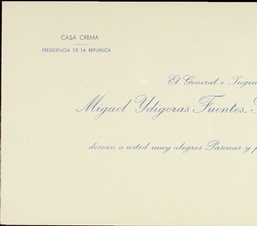 CASA CREMA
PRESIDENCIA DE LA REPUBLICA
El General e
Miguel Ydigoras Fuentes,
desean a usted muy alegres Pascuas y